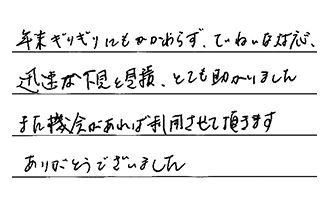 年末ぎりぎりにもかかわらず、ていねいな対応、
迅速な下見と見積、とても助かりました
また機会があれば利用させて頂きます
ありがとうございました